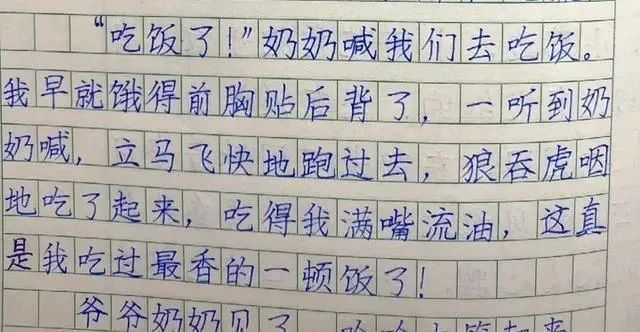 “吃饭了!”奶奶喊我们去吃饭。
我早就饿得前胸贴后背了，一听到奶
奶喊，立马飞快地跑过去，狼吞虎咽
地吃了起来，吃得我满嘴流油，这真
是我吃过最香的一顿饭了!
爷爷奶奶见了，哈哈大笑起来